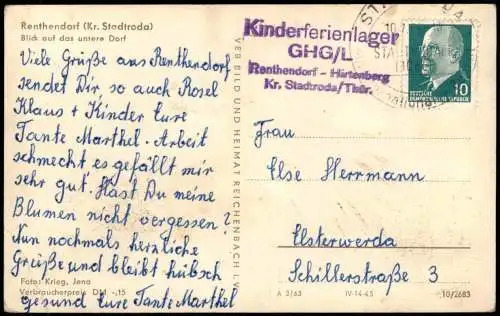 Renthendorf (Kr. Stadtroda)
Blick auf das untere Dorf
Viele Grüße aus Renthendorf
sendet Dir, so auch Rosel
Klaus + Kinder Eure
Tante Marthel. Arbeit
schmeckt es gefällt mir
sehr gut. Hast Du meine
Blumen nicht vergessen?
Nun nochmals herzliche
Grüße und bleibt hübsch
gesund Eure Tante Marthel
Foto: Krieg, Jena
Verbraucherpreis DM -,15
VEB BILD UND HEIMAT REICHENBACH I. V.
Kinderferienlager
GHG/L
Renthendorf - Härtenberg
Kr. Stadtroda/Thür.
10
DEUTSCHE
DEMOKRATISCHE REPUBLIK
Frau
Else Herrmann
Elsterwerda
Schillerstraße 3
A 3/63 IV-14-45 10/2683